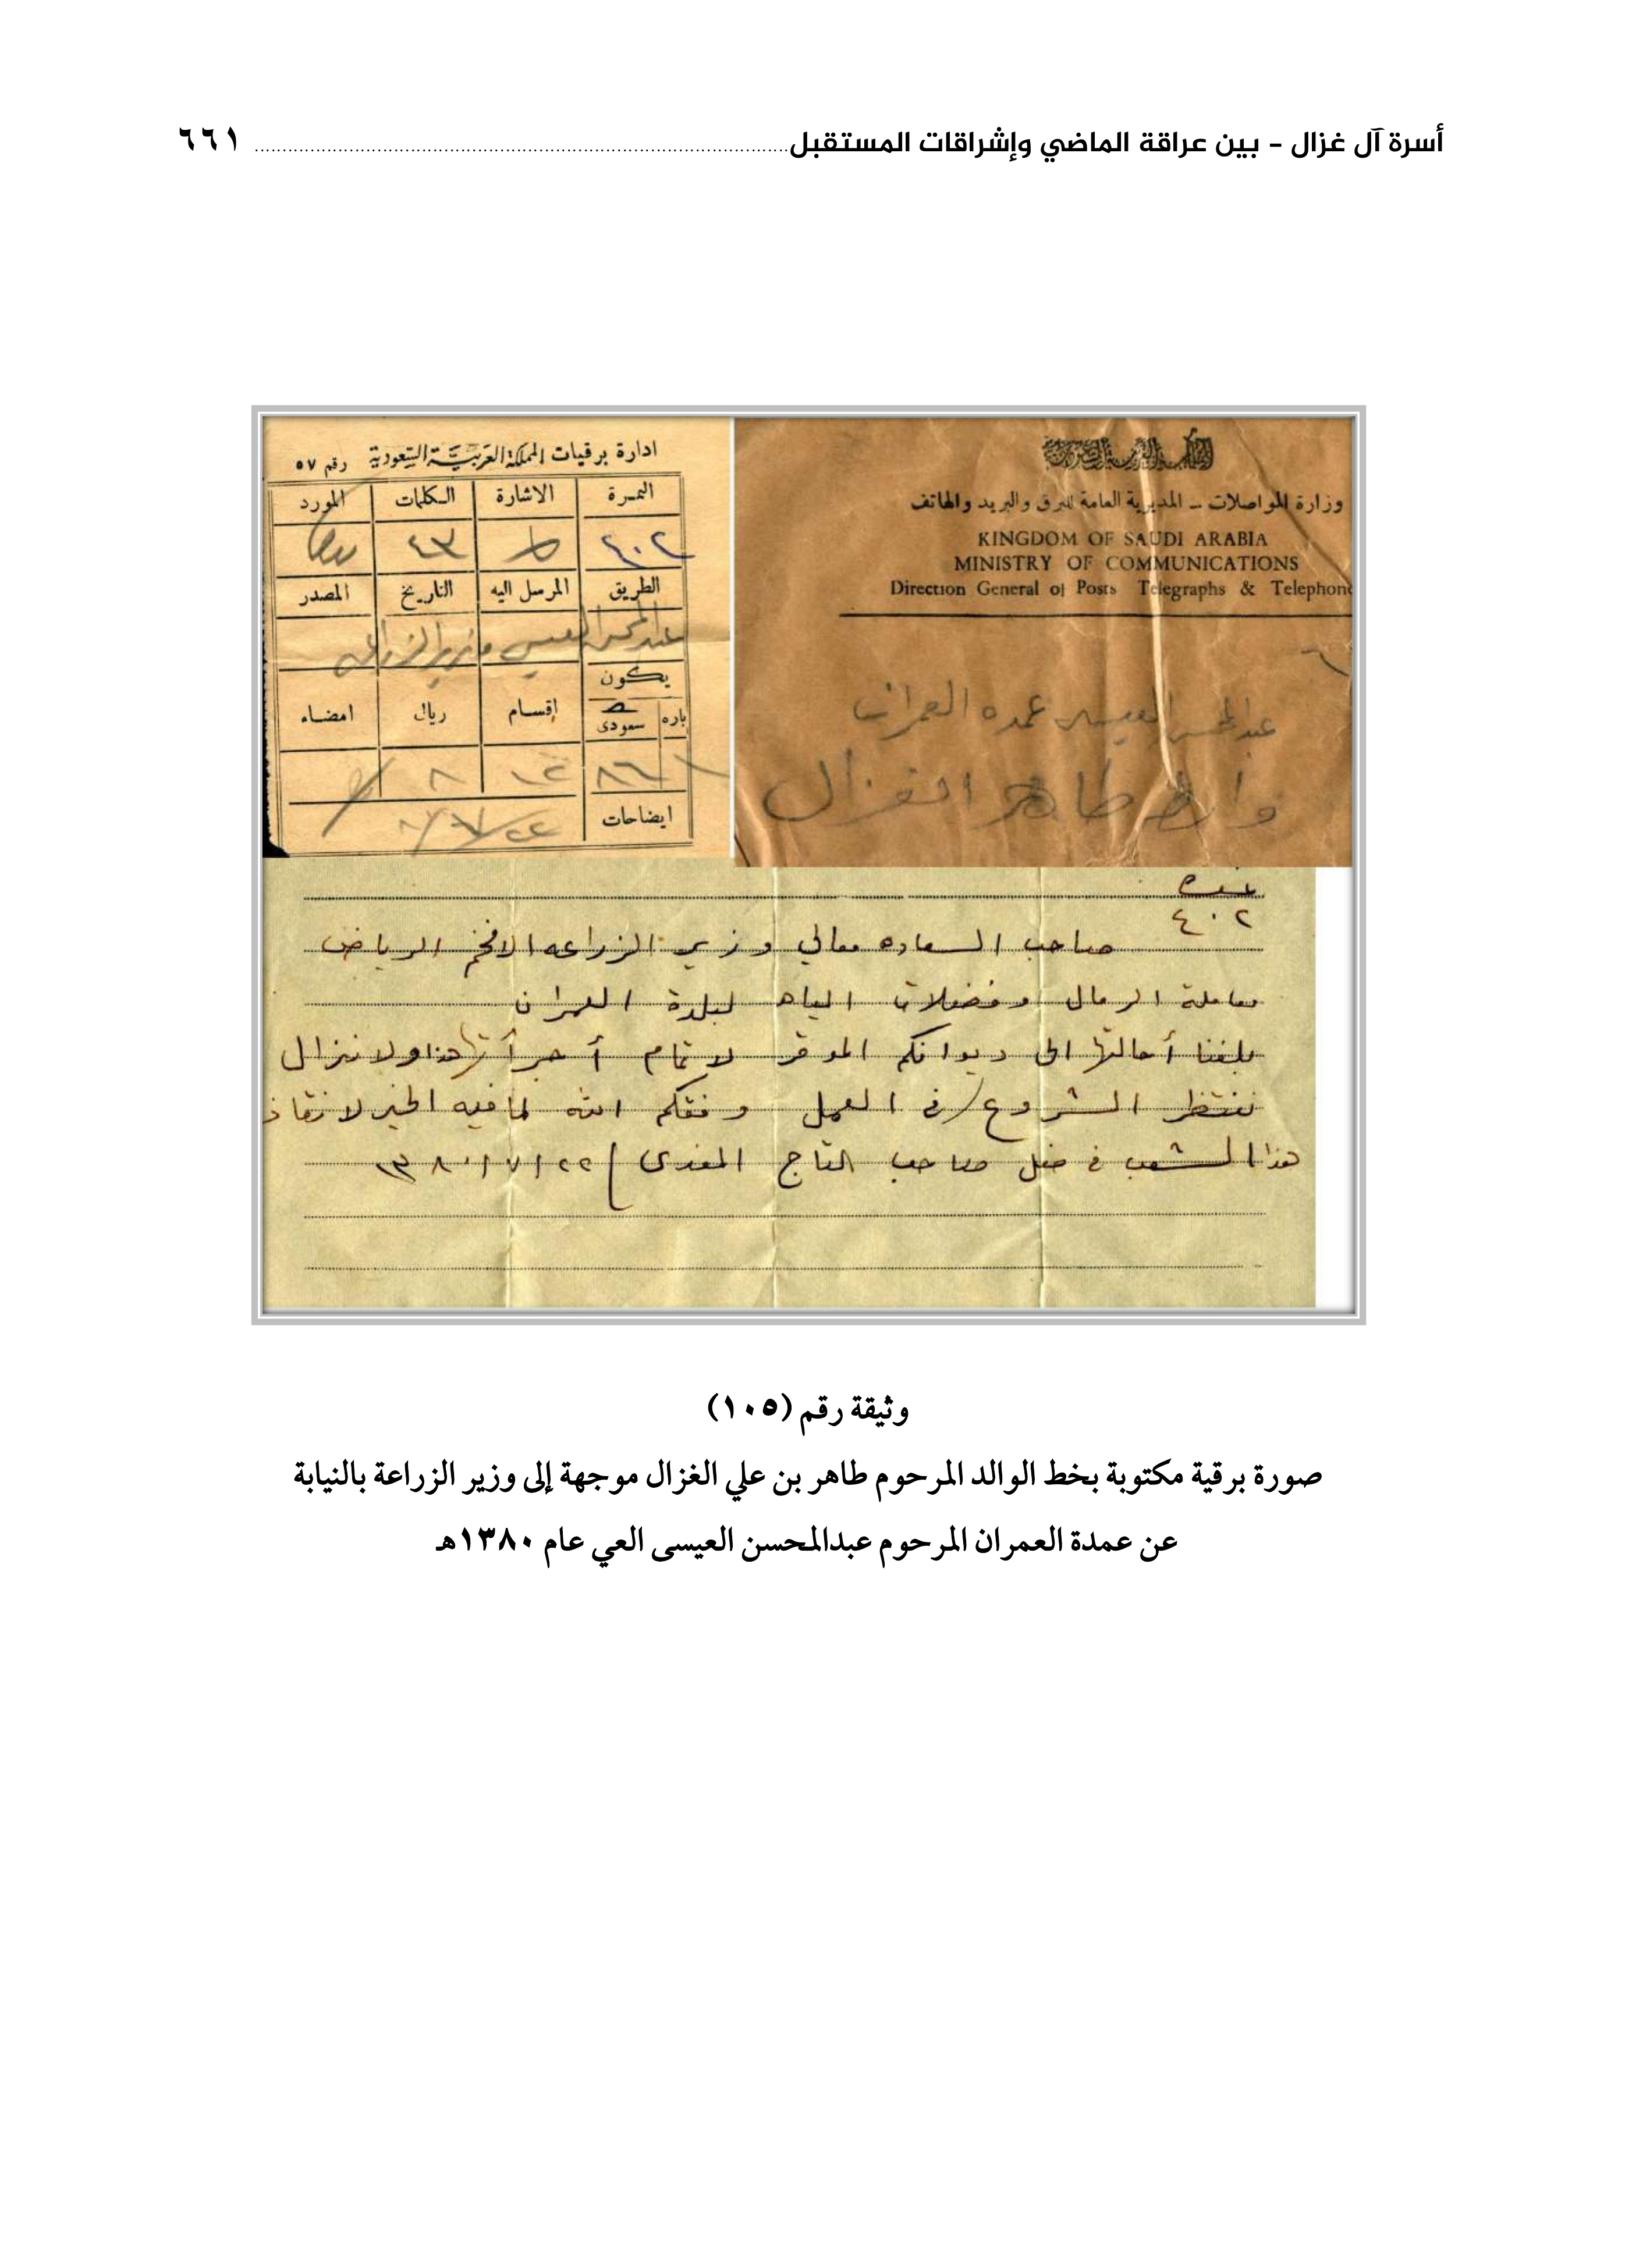 أسرة آل غزال – بين عراقة الماضي وإشراقات المستقبل ٦٦١
ادارة برقيات المملكة العربية السعودية رقم ٥٧
النمرة الاشارة الكلمات المورد
٤٠٢ ط ٤٣
الطريق المرسل اليه التاريخ المصدر
عبدالمحسن العيسى وزير الزراعه
يكون
باره سعودى إقسام ريال امضاء
ايضاحات
وزارة المواصلات – المديرية العامة للبرق والبريد والهاتف
KINGDOM OF SAUDI ARABIA
MINISTRY OF COMMUNICATIONS
Direction General of Posts Telegraphs & Telephone
عبدالمحسن العيسى عمده العمران
طاهر الغزال
٤٠٢
صاحب السعاده معالي وزير الزراعه الافخم الرياض
معاملة الرمال وفضلات المياه لبلدة العمران
بلغنا أحالتها الى ديوانكم الموقر لاتمام أجرأتها هذا ولا نزال
ننتظر الشروع في العمل وفقكم الله لمافيه الخير لانقاذ
هذا الشعب في ضل صاحب التاج المفدى ١٣٨٠/٧/٢٢
وثيقة رقم (١٠٥)
صورة برقية مكتوبة بخط الوالد المرحوم طاهر بن علي الغزال موجهة إلى وزير الزراعة بالنيابة
عن عمدة العمران المرحوم عبدالمحسن العيسى العي عام ١٣٨٠هـ